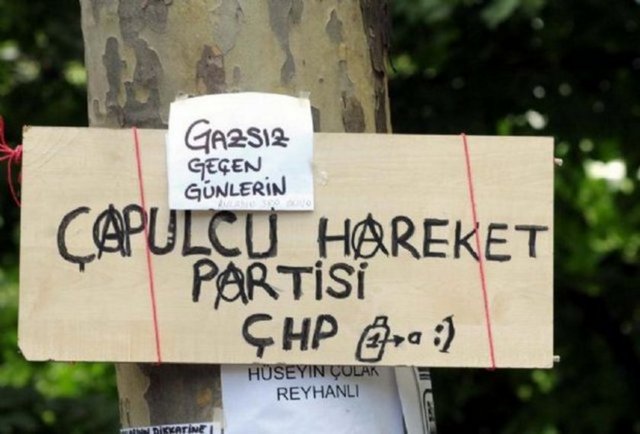 GAZSIZ
GEÇEN
GÜNLERİN
ÇAPULCU HAREKET
PARTİSİ
ÇHP 1→a :)
HÜSEYİN ÇOLAK
REYHANLI
DİKKATİNE!